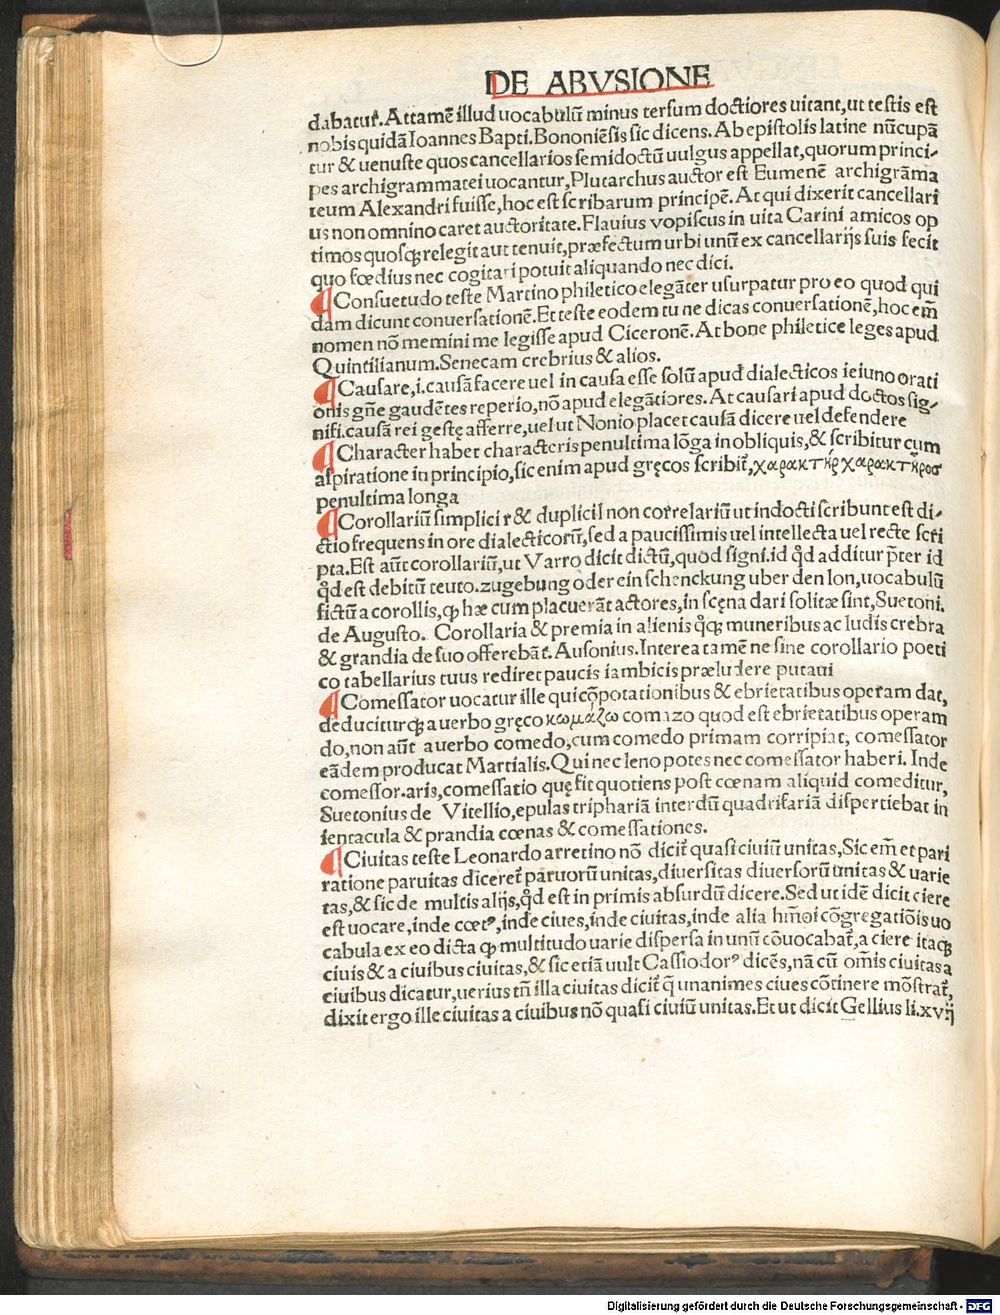 DE ABVSIONE
dabatur̃. Attamẽ illud uocabulũ minus tersum doctiores uitant, ut testis est
nobis quidã Ioannes Bapti. Bononiẽsis sic dicens. Ab epistolis latine nũcupã
tur & uenuste quos cancellarios semidoctũ uulgus appellat, quorum princi/
pes archigrammatei uocantur, Plutarchus auctor est Eumenẽ archigrãma
teum Alexandri fuisse, hoc est scribarum principẽ. At qui dixerit cancellari
us non omnino caret auctoritate. Flauius vopiscus in uita Carini amicos op
timos quosqꝫ relegit aut tenuit, præfectum urbi unũ ex cancellarijs suis fecit
quo fœdius nec cogitari potuit aliquando nec dici.
¶ Consuetudo teste Martino philetico elegãter usurpatur pro eo quod qui
dam dicunt conuersationẽ. Et teste eodem tu ne dicas conuersationẽ, hoc em̃
nomen nõ memini me legisse apud Ciceronẽ. At bone philetice leges apud
Quintilianum. Senecam crebrius & alios.
¶ Causare, i. causã facere uel in causa esse solũ apud dialecticos ieiuno orati
onis gñe gaudẽtes reperio, nõ apud elegãtiores. At causari apud doctos sig/
nifi. causã rei gestę afferre, uel ut Nonio placet causã dicere uel defendere
¶ Character habet characteris penultima lõga in obliquis, & scribitur cum
aspiratione in principio, sic enim apud gręcos scribit̃, χαρακτὴρ χαρακτῆρος
penultima longa
¶ Corollariũ simplici r & duplici l non correlariũ ut indocti scribunt est di/
ctio frequens in ore dialecticorũ, sed a paucissimis uel intellecta uel recte scri
pta. Est aũt corollariũ, ut Varro dicit dictũ, quod signi. id qd̃ additur p̃ter id
qd̃ est debitũ teuto. zugebung oder ein schenckung uber den lon, uocabulũ
fictũ a corollis, qꝫ hæ cum placuerãt actores, in scęna dari solitæ sint, Suetoni.
de Augusto. Corollaria & premia in alienis qꝗꝫ muneribus ac ludis crebra
& grandia de suo offerebãt. Ausonius. Interea tamẽ ne sine corollario poeti
co tabellarius tuus rediret paucis iambicis præludere putaui
¶ Comessator uocatur ille qui cõpotationibus & ebrietatibus operam dat,
deduciturqꝫ a uerbo gręco κωμάζω comazo quod est ebrietatibus operam
do, non aũt a uerbo comedo, cum comedo primam corripiat, comessator
eãdem producat Martialis. Qui nec leno potes nec comessator haberi. Inde
comessor. aris, comessatio quę fit quotiens post cœnam aliquid comeditur,
Suetonius de Vitellio, epulas triphariã interdũ quadrifariã dispertiebat in
ientacula & prandia cœnas & comessationes.
¶ Ciuitas teste Leonardo arretino nõ dicit̃ quasi ciuiũ unitas, Sic em̃ et pari
ratione paruitas diceret̃ paruorũ unitas, diuersitas diuersorũ unitas & uarie
tas, & sic de multis alijs, qd̃ est in primis absurdũ dicere. Sed ut idẽ dicit ciere
est uocare, inde cœtꝰ, inde ciues, inde ciuitas, inde alia hm̃oi cõgregatiõis uo
cabula ex eo dicta qꝫ multitudo uarie dispersa in unũ cõuocabat̃, a ciere itaqꝫ
ciuis & a ciuibus ciuitas, & sic etiã uult Cassiodorꝰ dicẽs, nã cũ om̃is ciuitas a
ciuibus dicatur, uerius tñ illa ciuitas dicit̃ q̃ unanimes ciues cõtinere mõstrat̃,
dixit ergo ille ciuitas a ciuibus nõ quasi ciuiũ unitas. Et ut dicit Gellius li. xvij
Digitalisierung gefördert durch die Deutsche Forschungsgemeinschaft - DFG